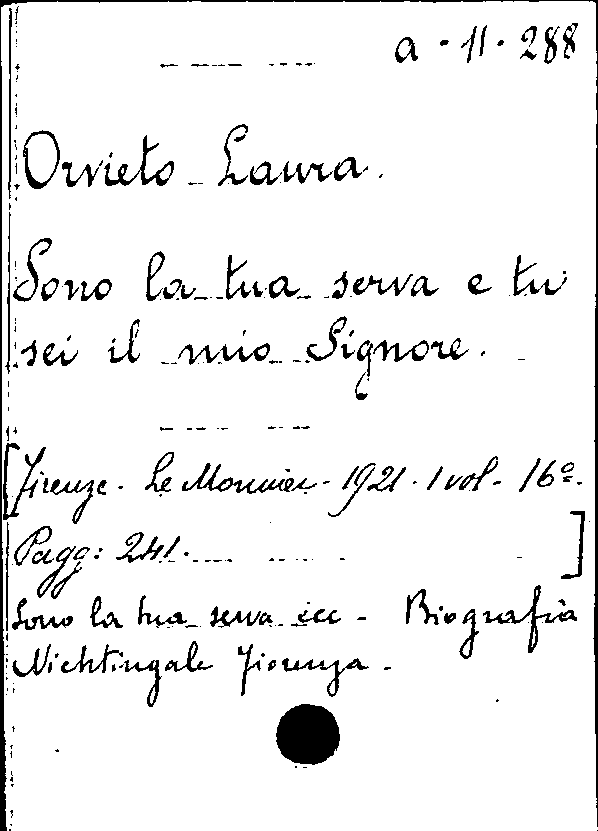 a - 11 - 288
Orvieto Laura.
Sono la tua serva e tu
sei il mio Signore.
[Firenze - Le Monnier - 1921 - 1 vol - 16º.
Pagg: 241. ]
Sono la tua serva ecc - Biografia
Nichtingale Fiorenza -